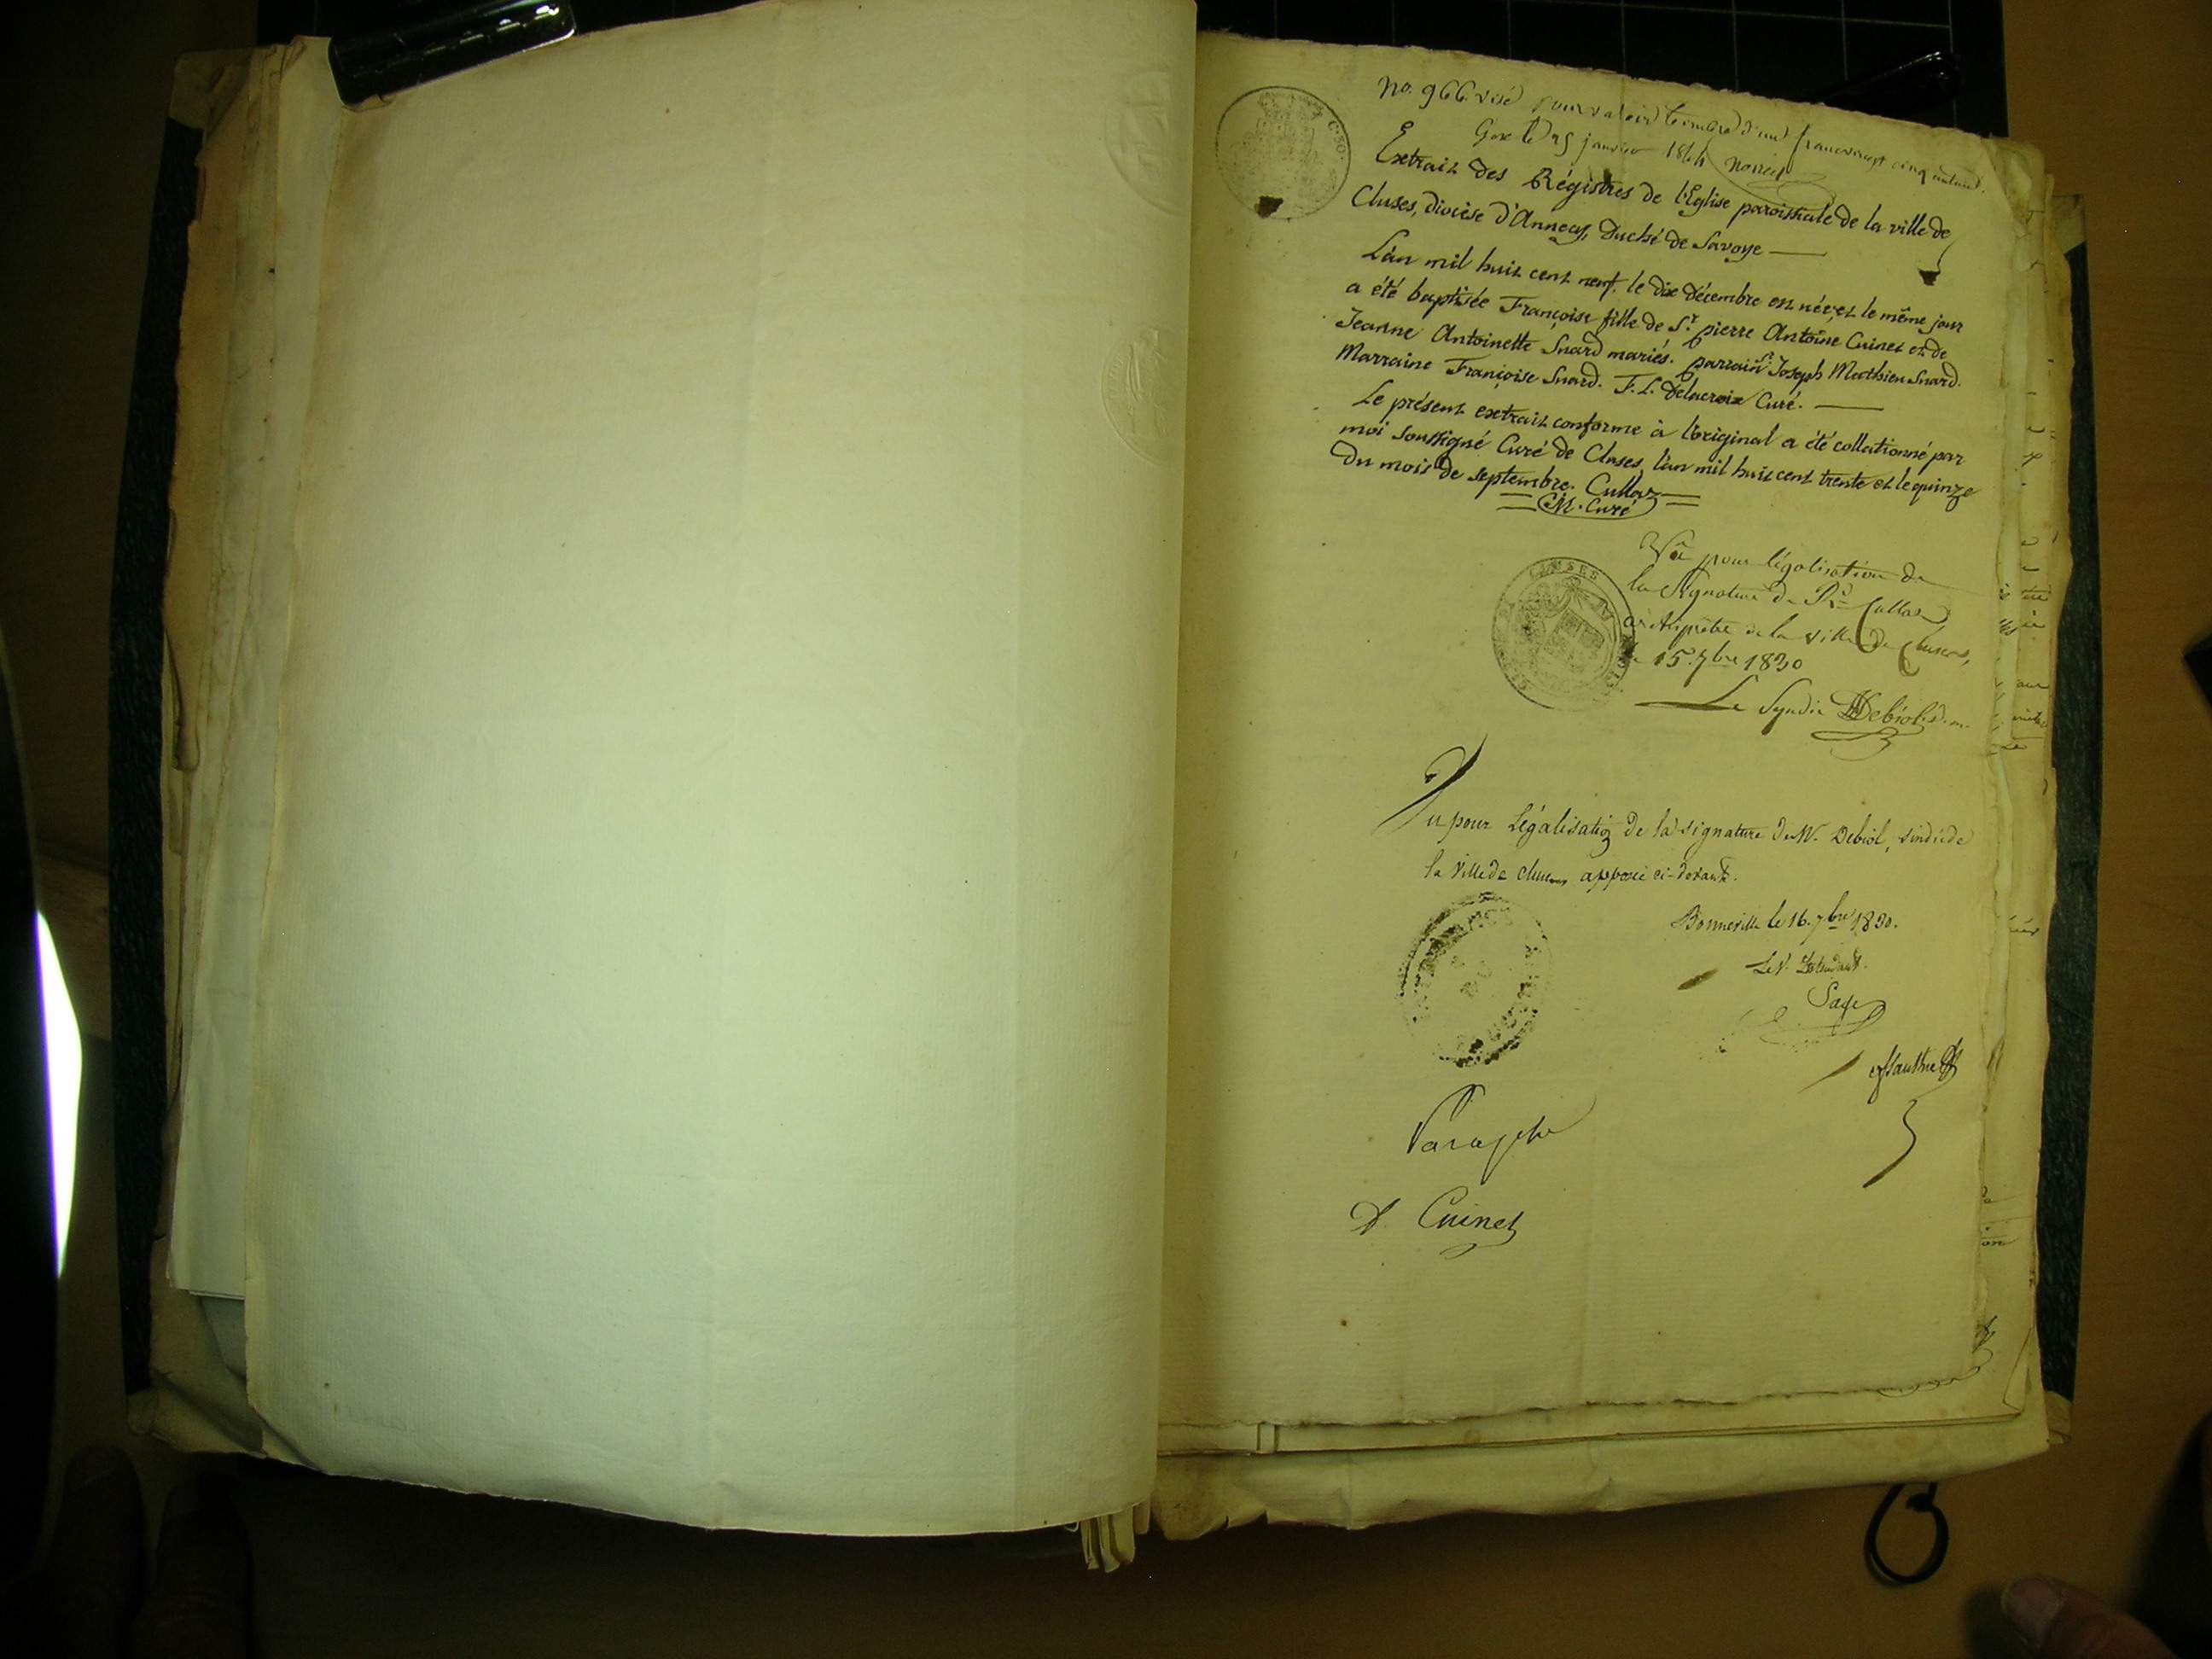 No. 966 visé pour valoir timbre d'un franc vingt cinq centimes
Gex le 25 janvier 1844
C. 50.
Extrait des Régistres de l'Eglise paroissiale de la ville de
Cluses, diocèse d'Annecy, Duché de Savoye
L'an mil huit cent neuf, le dix décembre est née, et le même jour
a été baptisée Françoise fille de Sr. pierre Antoine Cuinet et de
Jeanne Antoinette Suard mariés. parrain Sr. Joseph Mathieu Suard.
Marraine Françoise Suard. F. L. Delacroix Curé.
Le présent extrait conforme à l'original a été collationné par
moi soussigné Curé de Cluses, l'an mil huit cent trente et le quinze
du mois de septembre. Cullaz
Curé
Vû pour légalisation de
la Signature de Rd Cullaz
archiprêtre de la ville de Cluses,
le 15 7bre 1830
CLUSES
Le Syndic Debiol
Vu pour Légalisation de la signature de Mr. Debiol, sindic de
la Ville de Cluses apposée ci-devant.
Bonneville le 16. 7bre 1830.
Le V. Intendant.
Sage
Paraphé
Cuinet